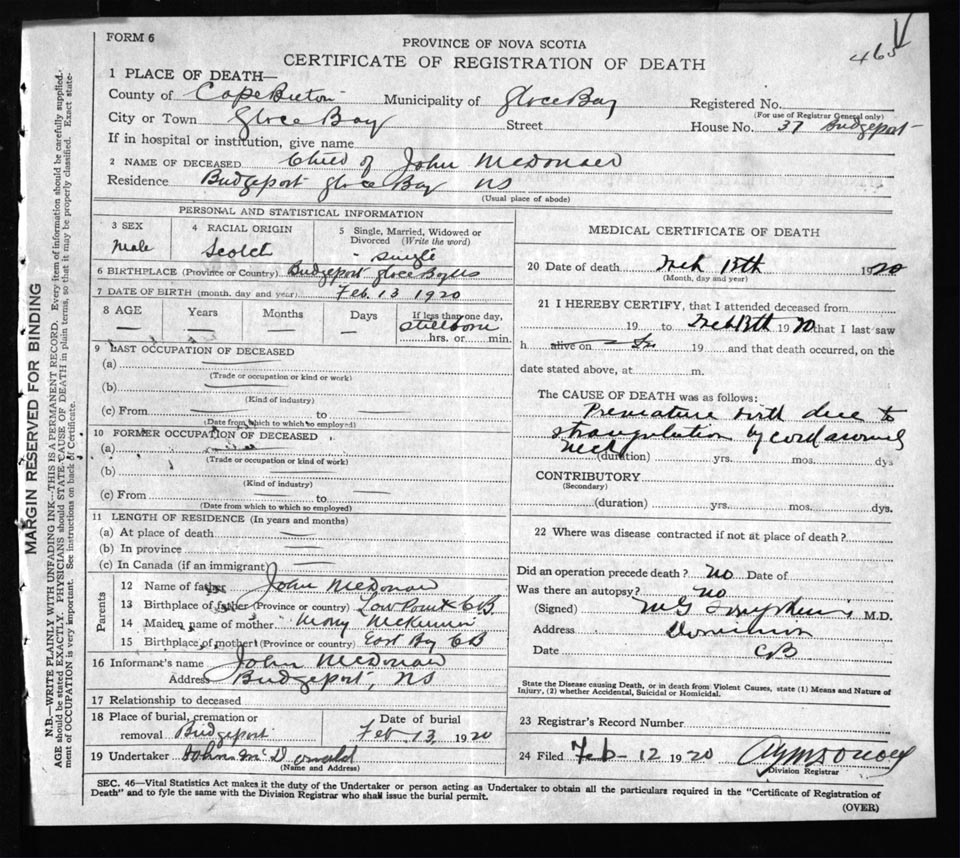 FORM 6
PROVINCE OF NOVA SCOTIA
CERTIFICATE OF REGISTRATION OF DEATH
465
1 PLACE OF DEATH—
County of Cape Breton Municipality of Glace Bay Registered No.
(For use of Registrar General only)
City or Town Glace Bay Street House No. 37 Bridgeport
If in hospital or institution, give name
2 NAME OF DECEASED Child of John McDonald
Residence Bridgeport Glace Bay NS
(Usual place of abode)
PERSONAL AND STATISTICAL INFORMATION
3 SEX
Male
4 RACIAL ORIGIN
Scotch
5 Single, Married, Widowed or Divorced (Write the word)
Single
6 BIRTHPLACE (Province or Country) Bridgeport Glace Bay NS
7 DATE OF BIRTH (month, day and year) Feb. 13 1920
8 AGE Years Months Days If less than one day,
Stillborn
hrs. or min.
9 LAST OCCUPATION OF DECEASED
(a)
(Trade or occupation or kind or work)
(b)
(Kind of industry)
(c) From to
(Date from which to which so employed)
10 FORMER OCCUPATION OF DECEASED
(a)
(Trade or occupation or kind of work)
(b)
(Kind of industry)
(c) From to
(Date from which to which so employed)
11 LENGTH OF RESIDENCE (In years and months)
(a) At place of death
(b) In province
(c) In Canada (if an immigrant)
Parents
12 Name of father John McDonald
13 Birthplace of father (Province or country) Low Point CB
14 Maiden name of mother Mary McKinnon
15 Birthplace of mother (Province or country) East Bay CB
16 Informant's name John McDonald
Address Bridgeport, NS
17 Relationship to deceased
18 Place of burial, cremation or removal Bridgeport
Date of burial
Feb. 13, 1920
19 Undertaker John McDonald
(Name and Address)
MEDICAL CERTIFICATE OF DEATH
20 Date of death 13th 1920
(Month, day and year)
21 I HEREBY CERTIFY, that I attended deceased from
19 to 13th 1920 that I last saw
h alive on 19 and that death occurred, on the
date stated above, at m.
The CAUSE OF DEATH was as follows:
Premature birth due to
strangulation by cord around
neck
(duration) yrs. mos. dys
CONTRIBUTORY
(Secondary)
(duration) yrs. mos. dys.
22 Where was disease contracted if not at place of death?
Did an operation precede death? No Date of
Was there an autopsy? No
(Signed) M.D.
Address Dominion
Date CB
State the Disease causing Death, or in death from Violent Causes, state (1) Means and Nature of
Injury, (2) whether Accidental, Suicidal or Homicidal.
23 Registrar's Record Number
24 Filed Feb- 12 1920
Division Registrar
SEC. 46—Vital Statistics Act makes it the duty of the Undertaker or person acting as Undertaker to obtain all the particulars required in the "Certificate of Registration of
Death" and to fyle the same with the Division Registrar who shall issue the burial permit.
(OVER)
MARGIN RESERVED FOR BINDING
N.B.—WRITE PLAINLY WITH UNFADING INK—THIS IS A PERMANENT RECORD. Every item of information should be carefully supplied.
AGE should be stated EXACTLY. PHYSICIANS should STATE CAUSE OF DEATH in plain terms, so that it may be properly classified. Exact state-
ment of OCCUPATION is very important. See instructions on back of Certificate.